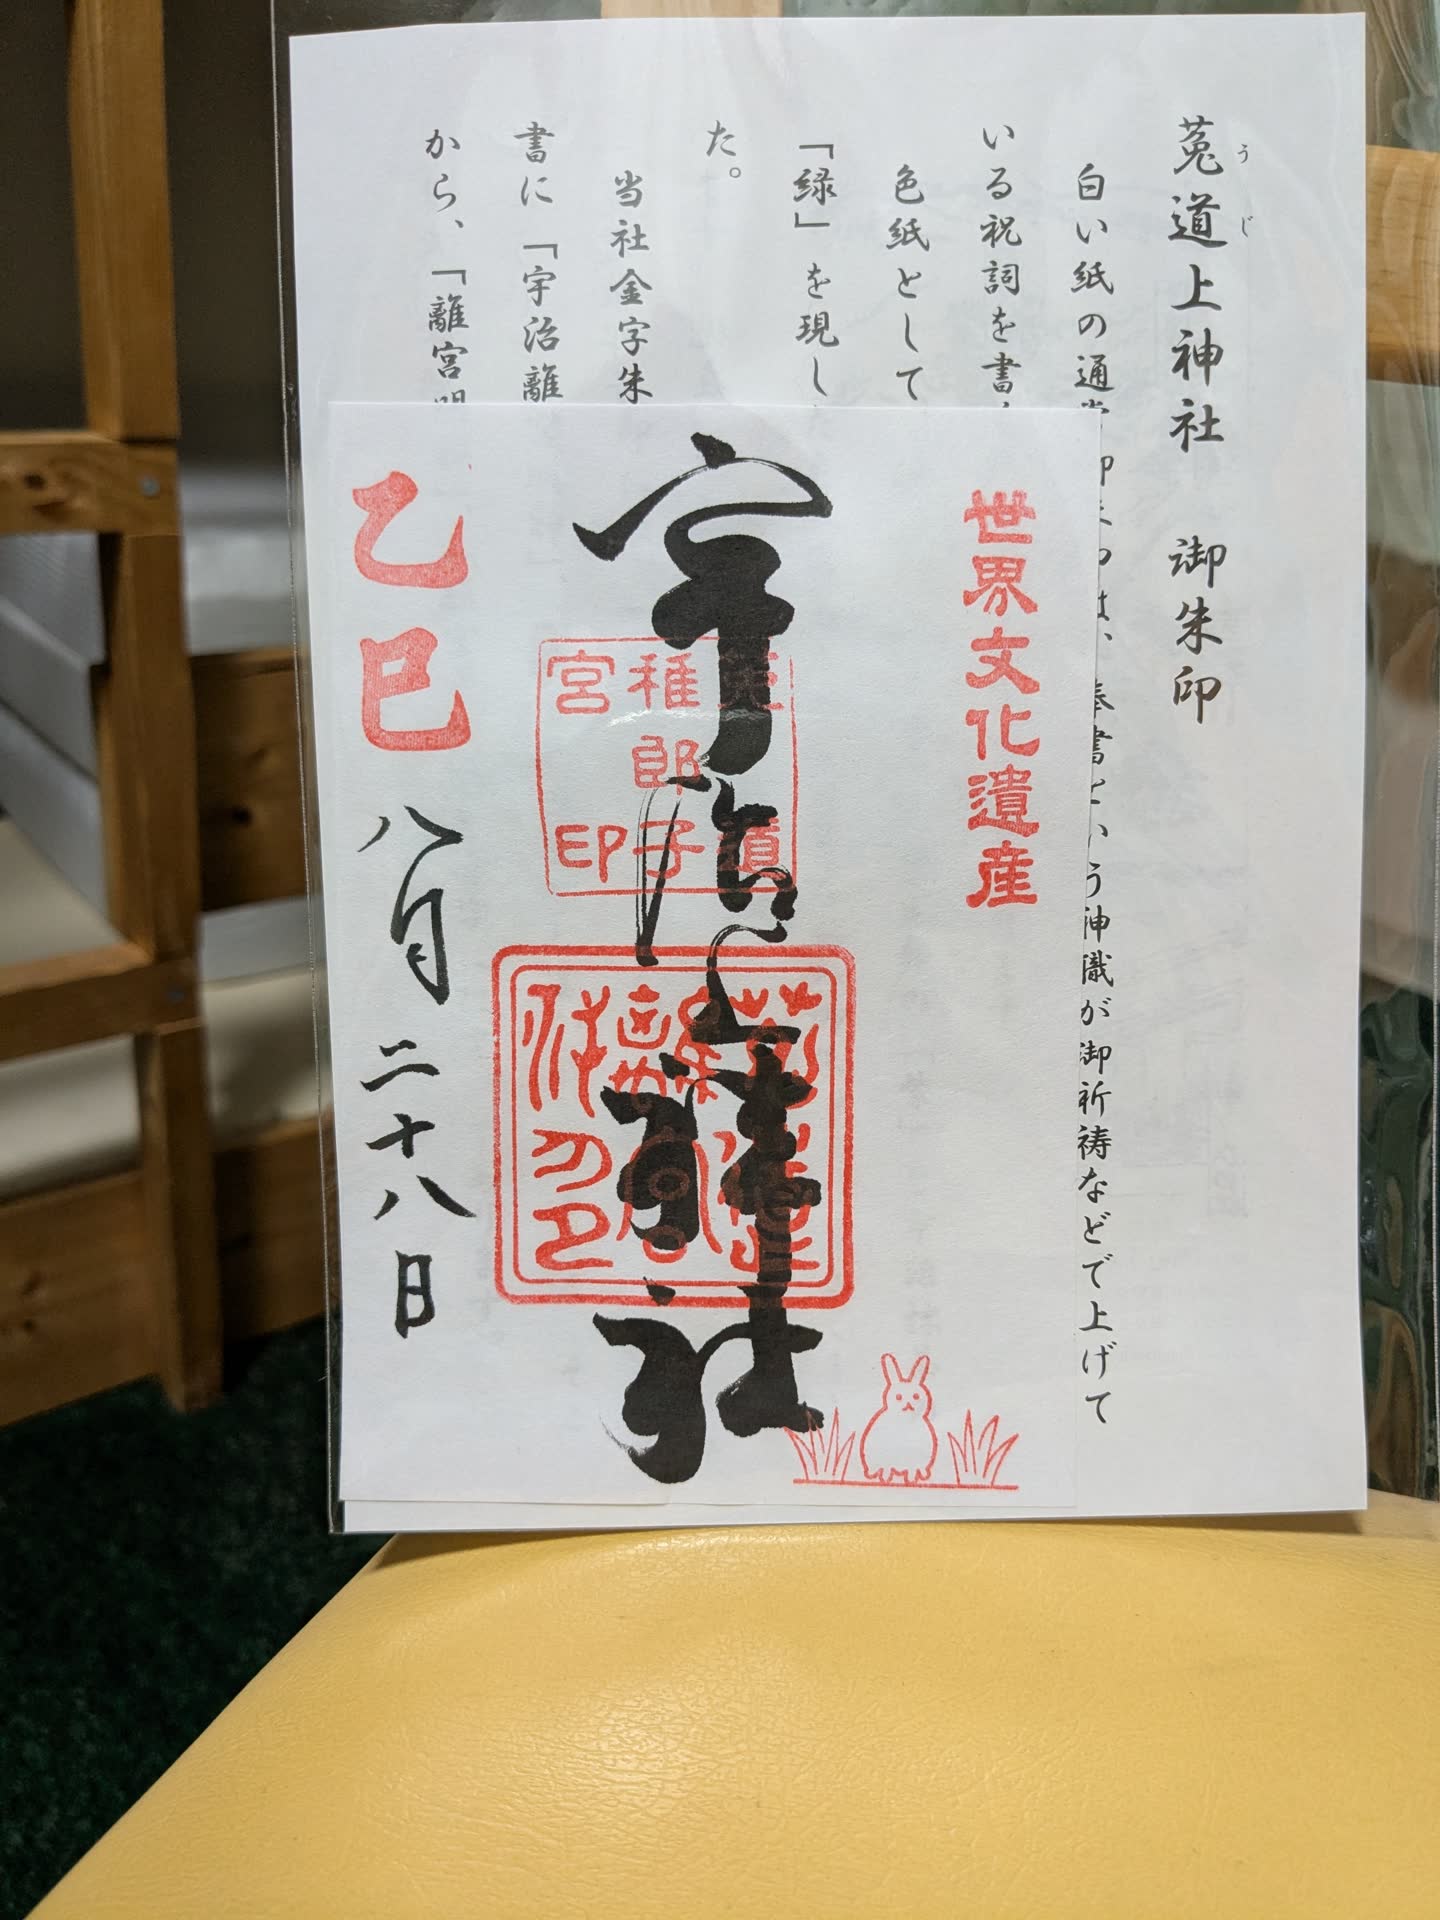 菟道上神社　御朱印
うじ
白い紙の通常
は、奉書という神職が御祈祷などで上げて
いる祝詞を書
色紙として
「緑」を現し
た。
当社金字朱
書に「宇治離
から、「離宮
世界文化遺産
宇治上神社
菟道
稚郎子
宮印
乙巳
八月二十八日